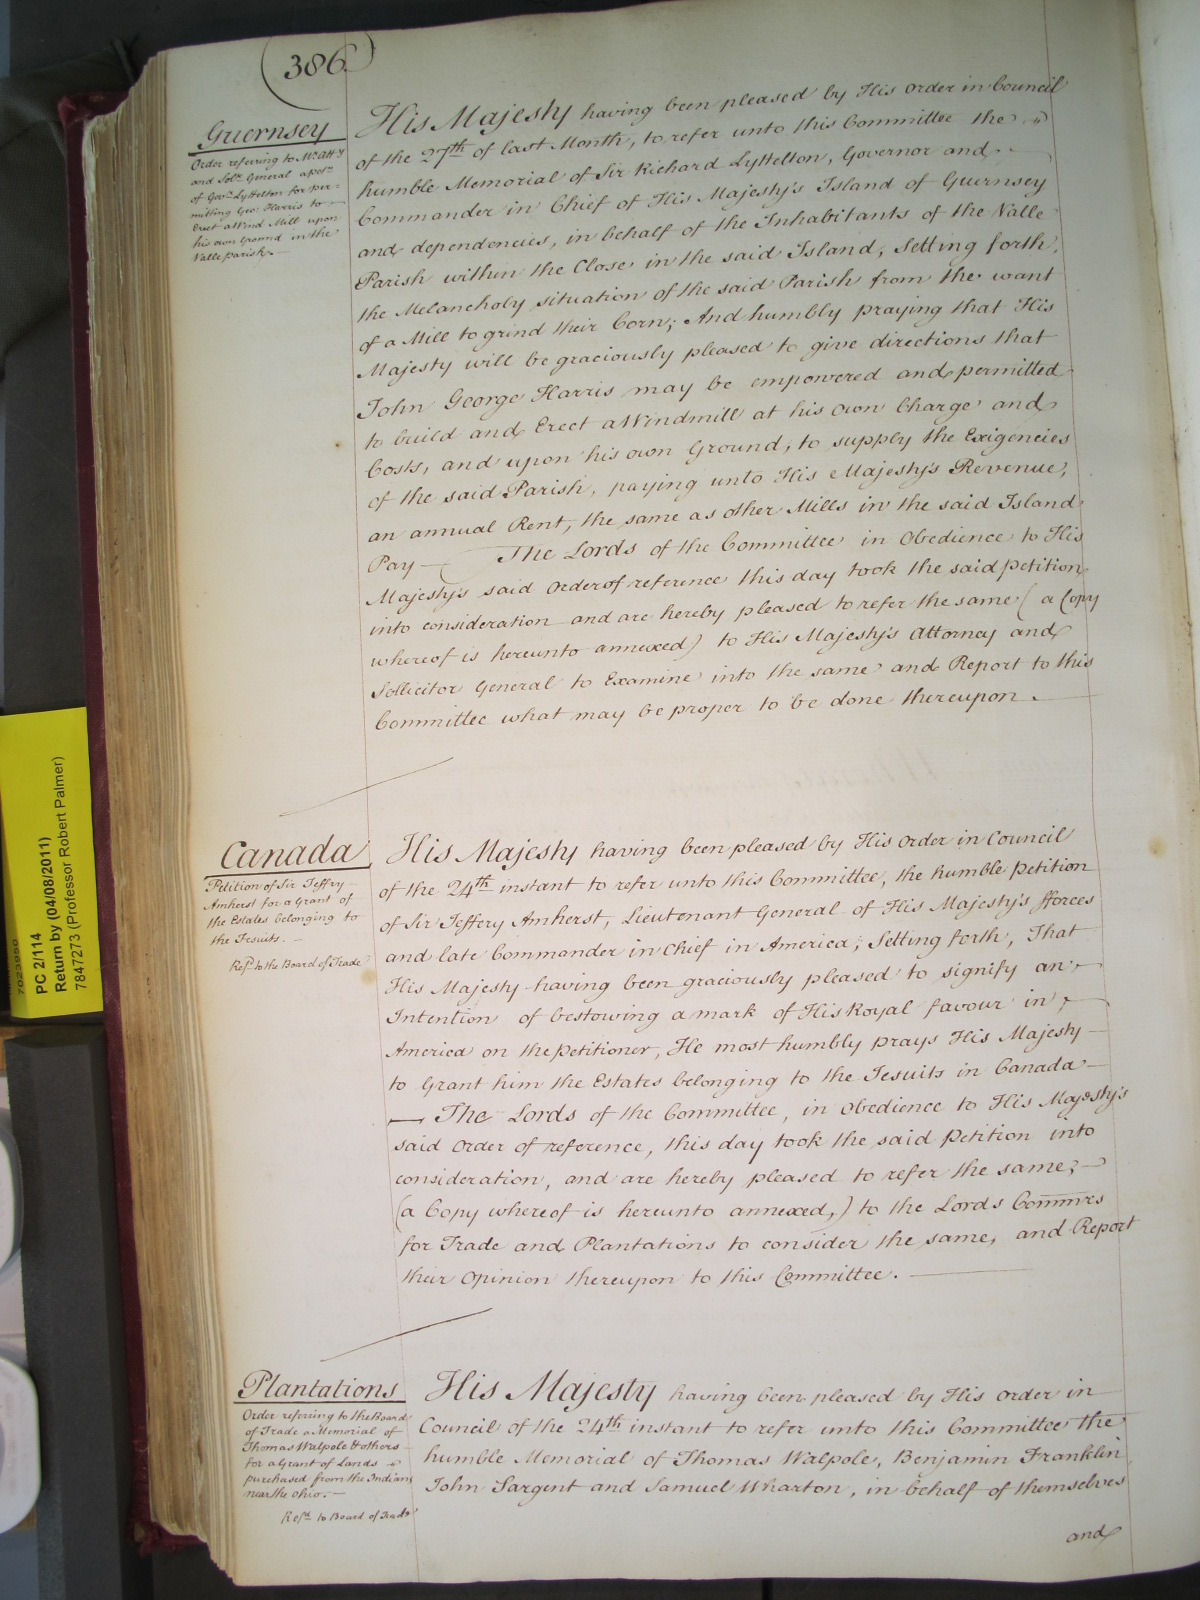 386
Guernsey
Order referring to Mr. Att.y
and Sollr. General a petn.
of Govr. Lyttelton for per=
mitting Geo: Harris to
Erect a Wind Mill upon
his own Ground in the
Valle parish.
His Majesty having been pleased by His Order in Council
of the 27th of last Month, to refer unto this Committee the
humble Memorial of Sir Richard Lyttelton, Governor and
Commander in Chief of His Majesty's Island of Guernsey
and dependencies, in behalf of the Inhabitants of the Valle
Parish within the Close in the said Island, Setting forth,
the Melancholy situation of the said Parish from the want
of a Mill to grind their Corn; And humbly praying that His
Majesty will be graciously pleased to give directions that
John George Harris may be empowered and permitted
to build and Erect a Windmill at his own Charge and
Costs, and upon his own Ground, to supply the Exigencies
of the said Parish, paying unto His Majesty's Revenue,
an annual Rent, the same as other Mills in the said Island
Pay — The Lords of the Committee in Obedience to His
Majesty's said Order of reference this day took the said petition
into consideration and are hereby pleased to refer the same (a Copy
whereof is hereunto annexed) to His Majesty's Attorney and
Sollicitor General to Examine into the same and Report to this
Committee what may be proper to be done thereupon.
Canada
Petition of Sir Jeffry
Amherst for a Grant of
the Estates belonging to
the Jesuits. —
Refd. to the Board of Trade
His Majesty having been pleased by His Order in Council
of the 24th instant to refer unto this Committee, the humble Petition
of Sir Jeffery Amherst, Lieutenant General of His Majesty's fforces
and late Commander in Chief in America; Setting forth, That
His Majesty having been graciously pleased to signify an
Intention of bestowing a mark of His Royal favour in
America on the Petitioner, He most humbly prays His Majesty
to Grant him the Estates belonging to the Jesuits in Canada
— The Lords of the Committee, in Obedience to His Majesty's
said Order of reference, this day took the said Petition into
consideration, and are hereby pleased to refer the same,
(a Copy whereof is hereunto annexed,) to the Lords Commrs
for Trade and Plantations to consider the same, and Report
their Opinion thereupon to this Committee.
Plantations
Order referring to the Board
of Trade a Memorial of
Thomas Walpole & others
for a Grant of Lands
purchased from the Indians
near the Ohio. —
Refd. to Board of Trade
His Majesty having been pleased by His Order in
Council of the 24th instant to refer unto this Committee the
humble Memorial of Thomas Walpole, Benjamin Franklin
John Sargent and Samuel Wharton, in behalf of themselves
and
PC 2/114
Return by (04/08/2011)
7847273 (Professor Robert Palmer)